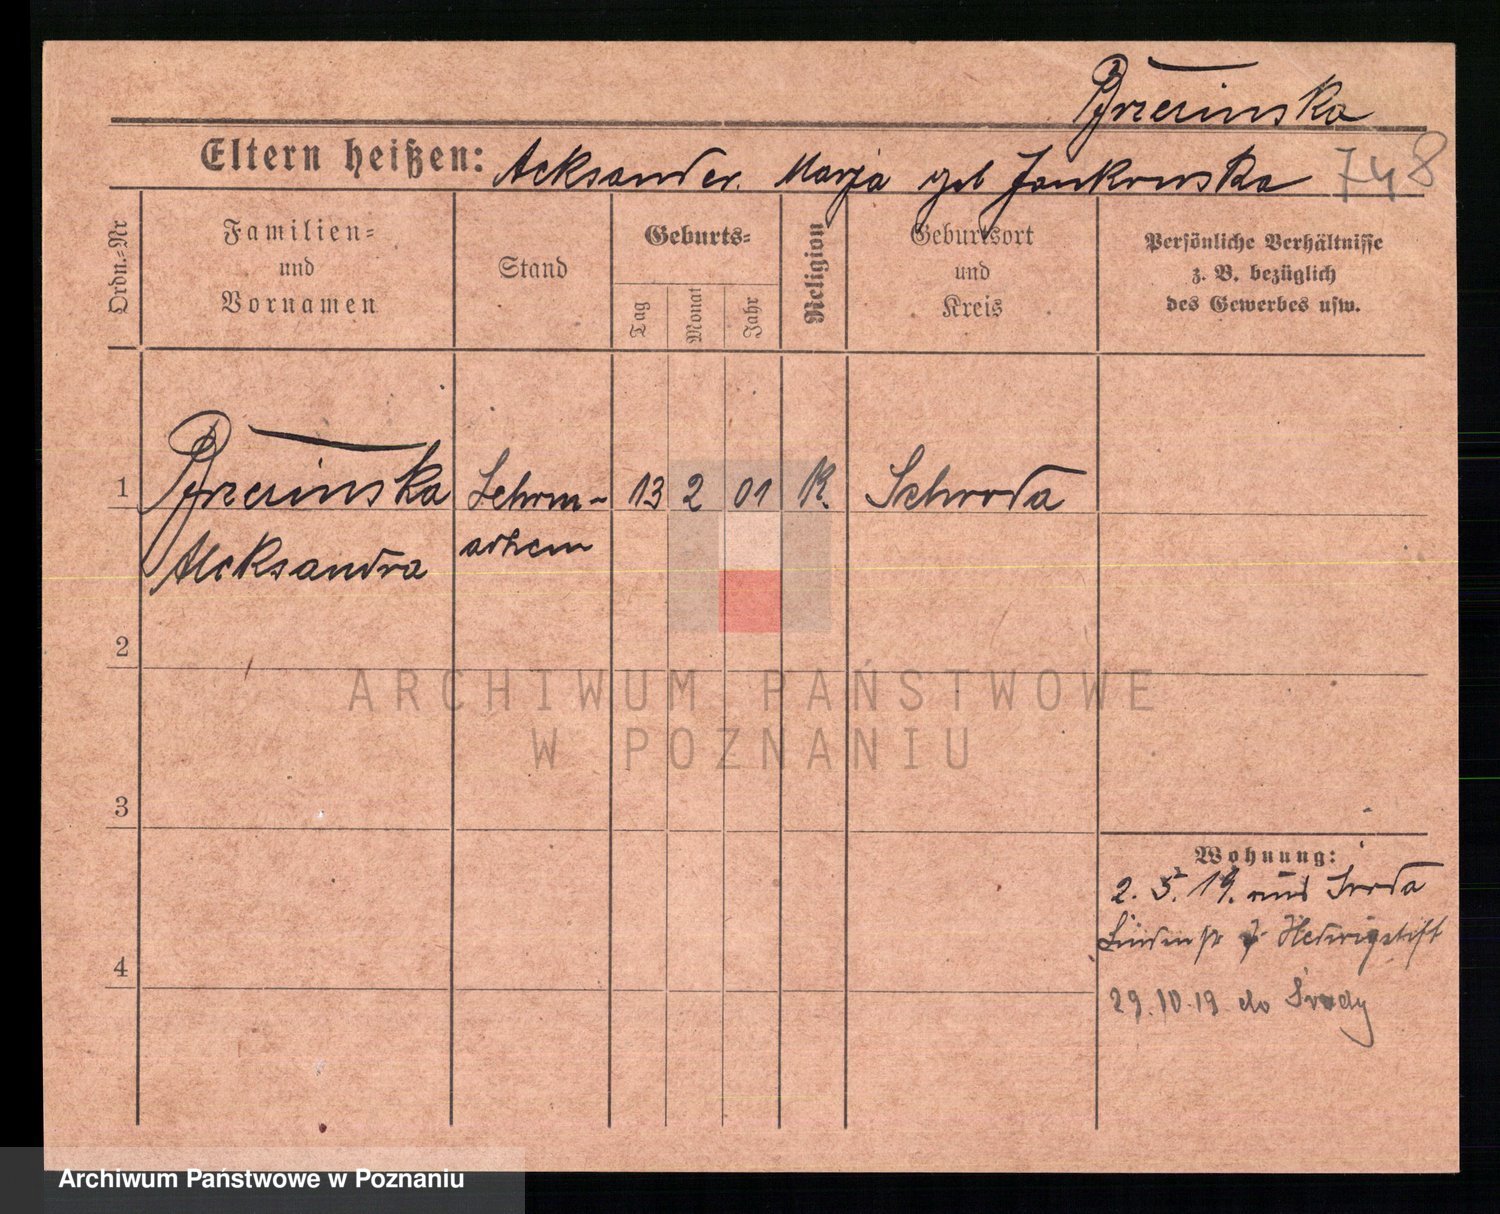 Brzezinska
Eltern heißen: Aleksander. Marja geb Jankowska 748
Ordn.-Nr
Familien-
und
Vornamen
Stand
Geburts-
Tag
Monat
Jahr
Religion
Geburtsort
und
Kreis
Persönliche Verhältnisse
z. B. bezüglich
des Gewerbes usw.
1 Brzezinska 13 2 01 K. Schroda
Aleksandra
2
ARCHIWUM PAŃSTWOWE
W POZNANIU
3
4
Wohnung:
2. 5. 19. aus Środa
Lindenstr 7 Hedwigstift
29.10.19 do Środy
Archiwum Państwowe w Poznaniu